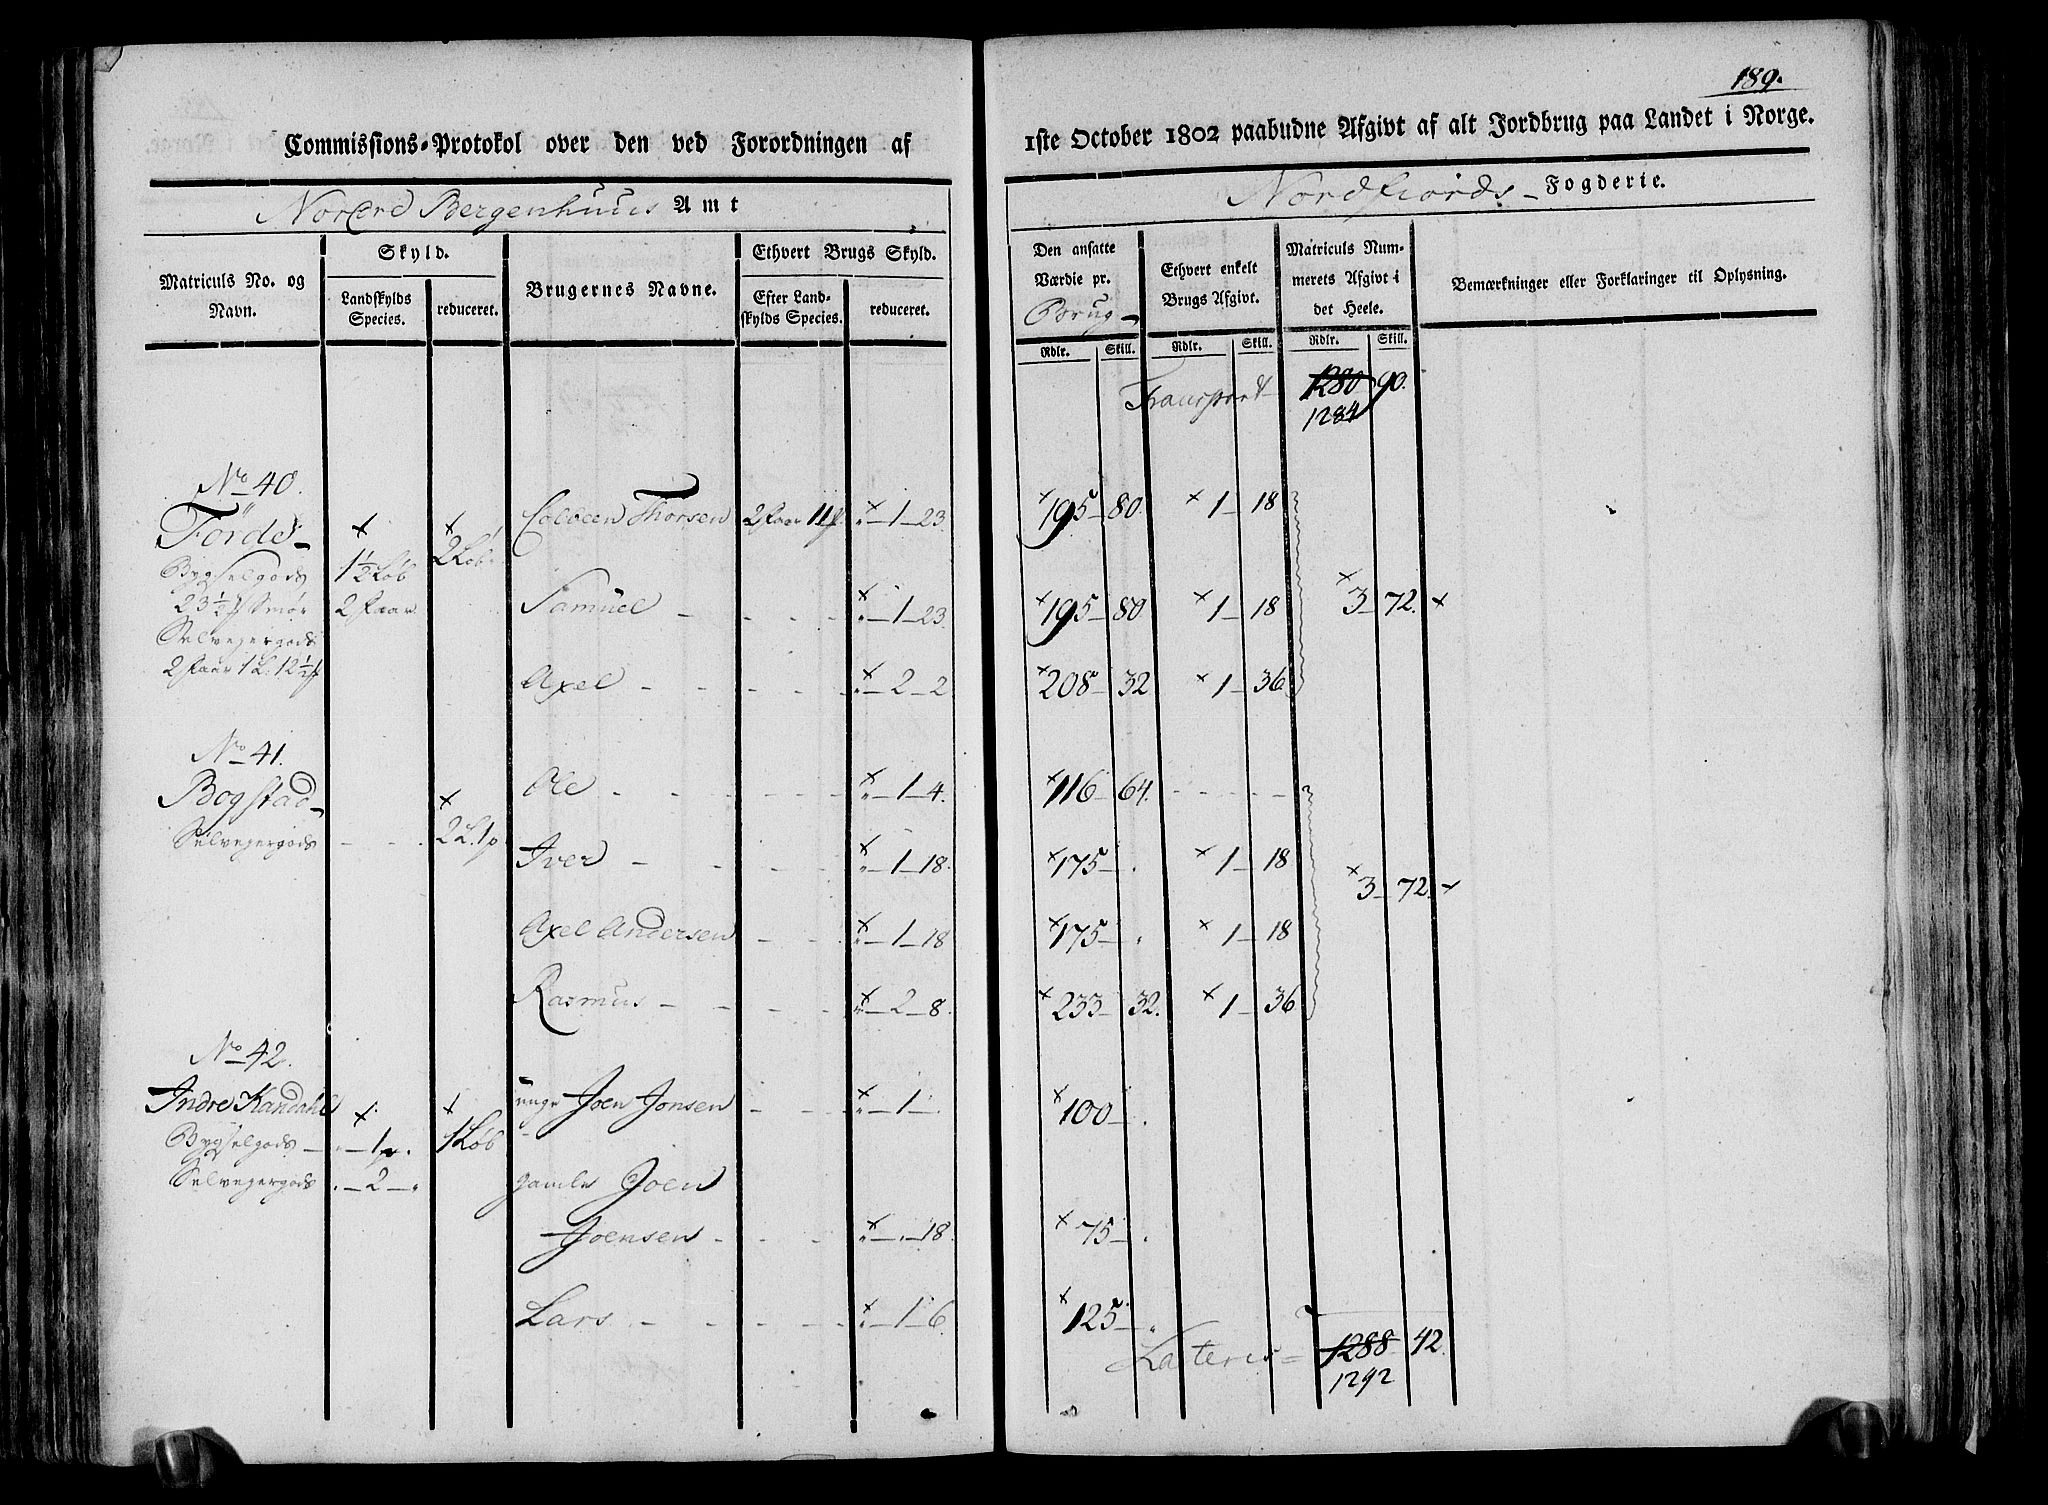 189.
Commissions-Protokol over den ved Forordningen af 1ste October 1802 paabudne Afgivt af alt Jordbrug paa Landet i Norge.
Nordre Bergenhuus Amt Nordfiords Fogderie.
Matriculs No. og Navn.
Skyld.
Landskylds Species.
reduceret.
Brugernes Navne.
Ethvert Brugs Skyld.
Efter Landskylds Species.
reduceret.
Den ansatte Værdie pr. Brug
Ethvert enkelt Brugs Afgivt.
Matriculs Nummerets Afgivt i det Heele.
Bemærkninger eller Forklaringer til Oplysning.
Rdlr. Skill. Rdlr. Skill. Rdlr. Skill.
Transport 1280 90.
1284
No 40.
Förde 1 1/2 Løb 2 Løb Colbeen Thorsen 2 Faar 11 " 1 23. 195 80. 1 18
Bygselgods
23 1/2 Smør 2 Faar Samuel " 1 23. 195 80 1 18 3 72.
Selvejergods
2 Faar 1 L. 12 1/2 Axel " 2 2 208 32 1 36
No 41.
Bogstad Ole " 1 4. 116 64.
Selvejergods 2 L. 1 p Iver " 1 18. 175 . 1 18
3 72.
Axel Andersen " 1 18 175 . 1 18
Rasmus " 2 8. 233 32. 1 36
No 42.
Indre Kandahl 1 Løb unge Joen Jonsen " 1 . 100 .
Bygselgods " 1 p.
Selvejergods " 2 " gamle Joen
Joensen " . 18. 75 .
Lars " 1 6. 125 "
Lateris 1288 42.
1292